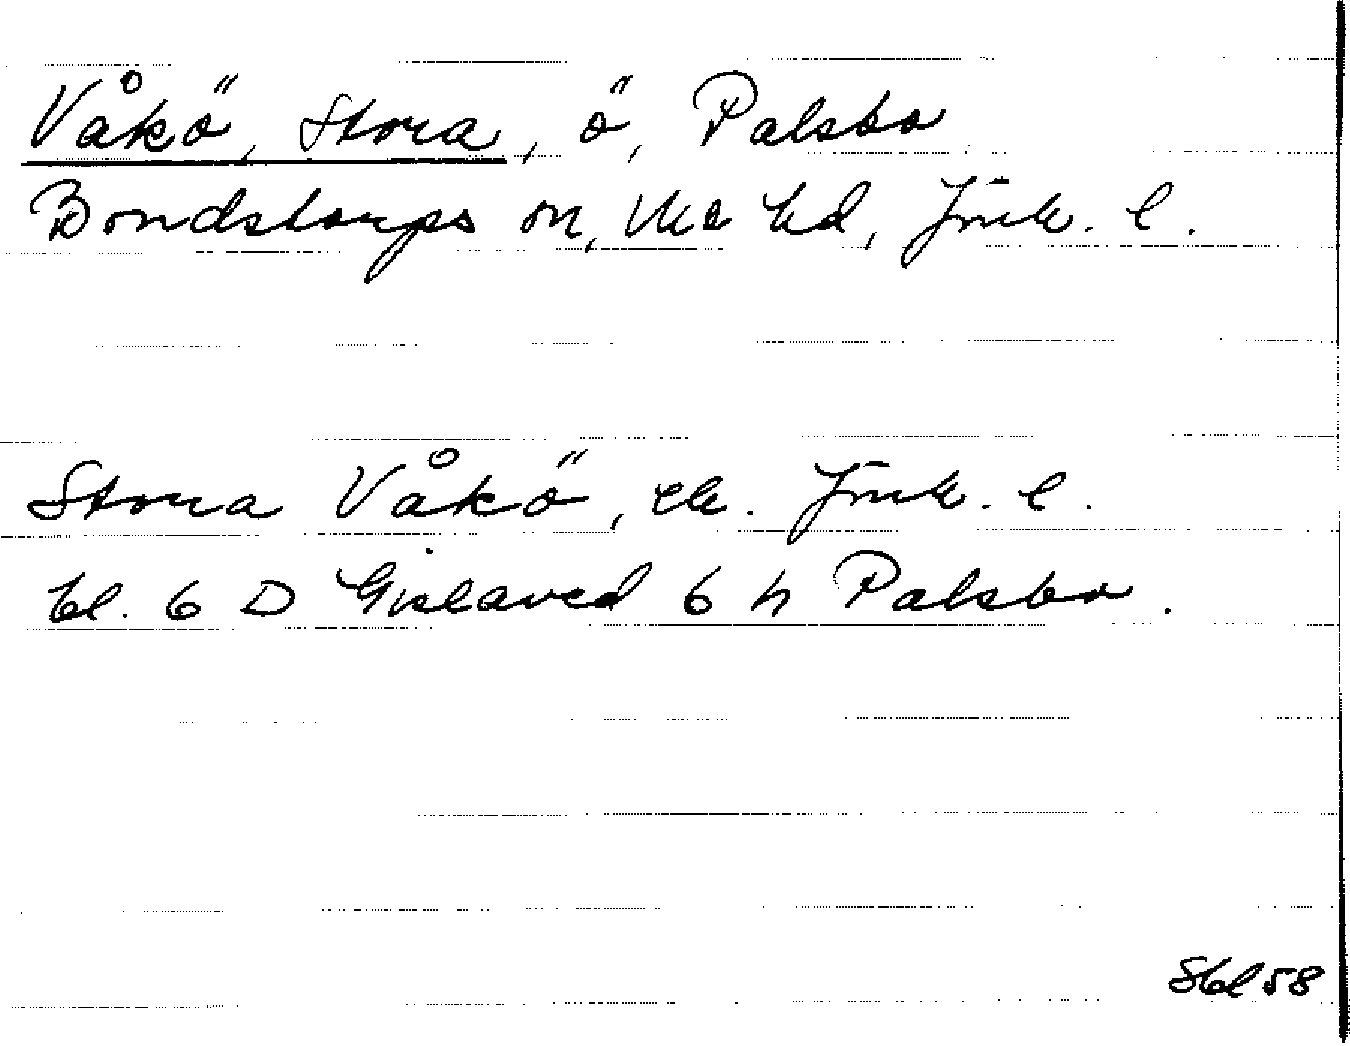 Våkö, Stora, ö, Palsbo
Bondstorps sn, Mo hd, Jönk. l.
Stora Våkö, ek. Jönk. l.
bl. 6 D Gislaved 6 h Palsbo.
Sbl 58